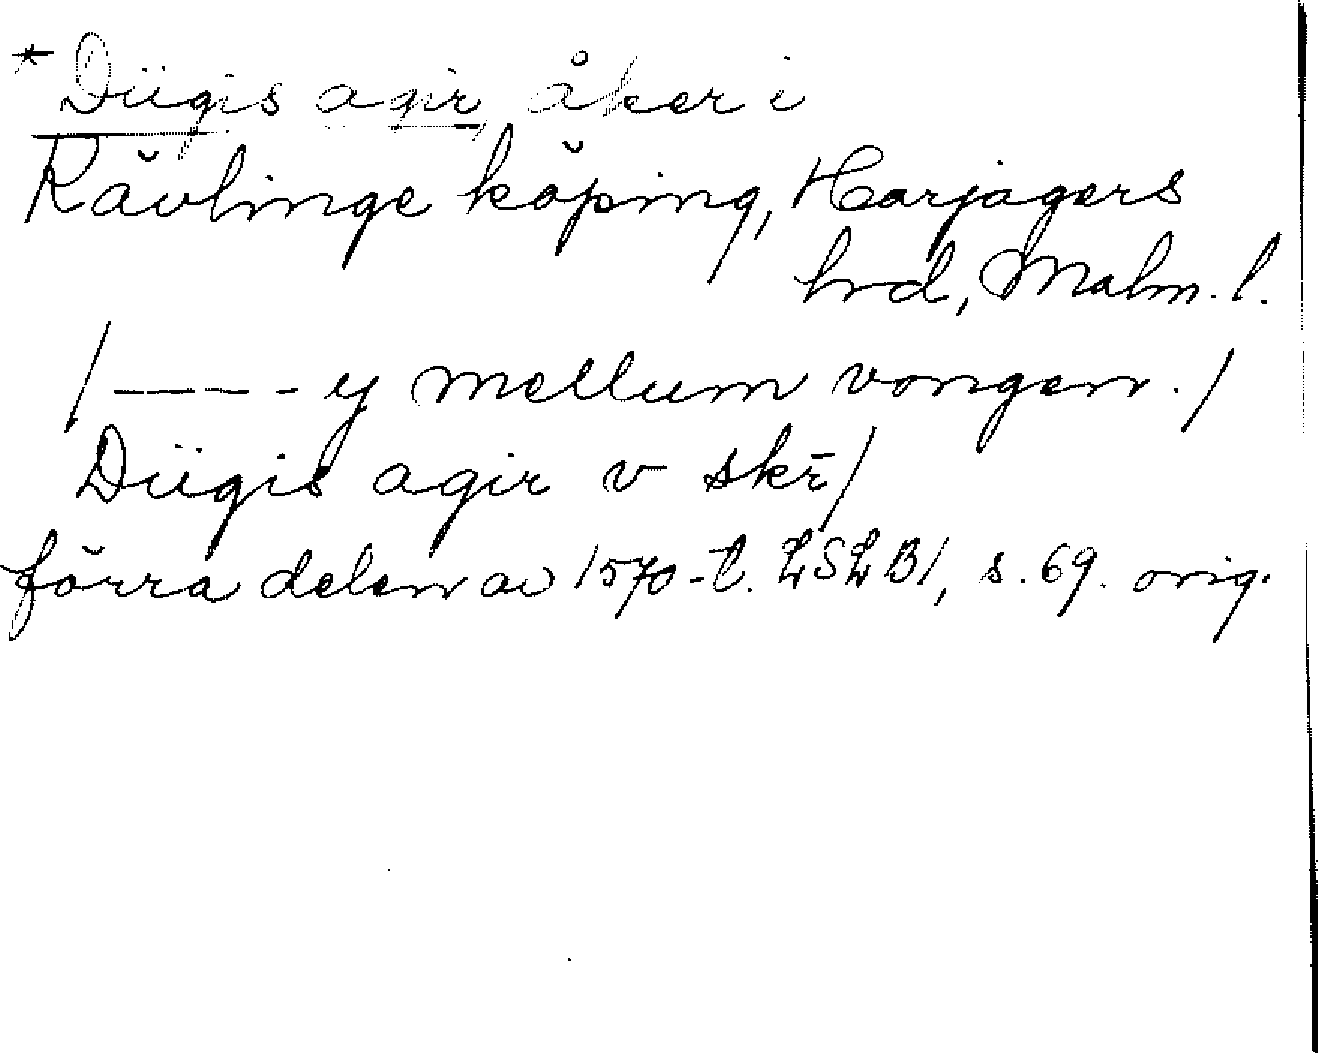 * Diigis agir, åker i
Rävlinge köping, Harjagers
hrd, Malm. l.
/ – – – – y mellum vongen. /
Diigis agir v skr /
förra delen av 1570-t. LSLB1, s. 69. orig.